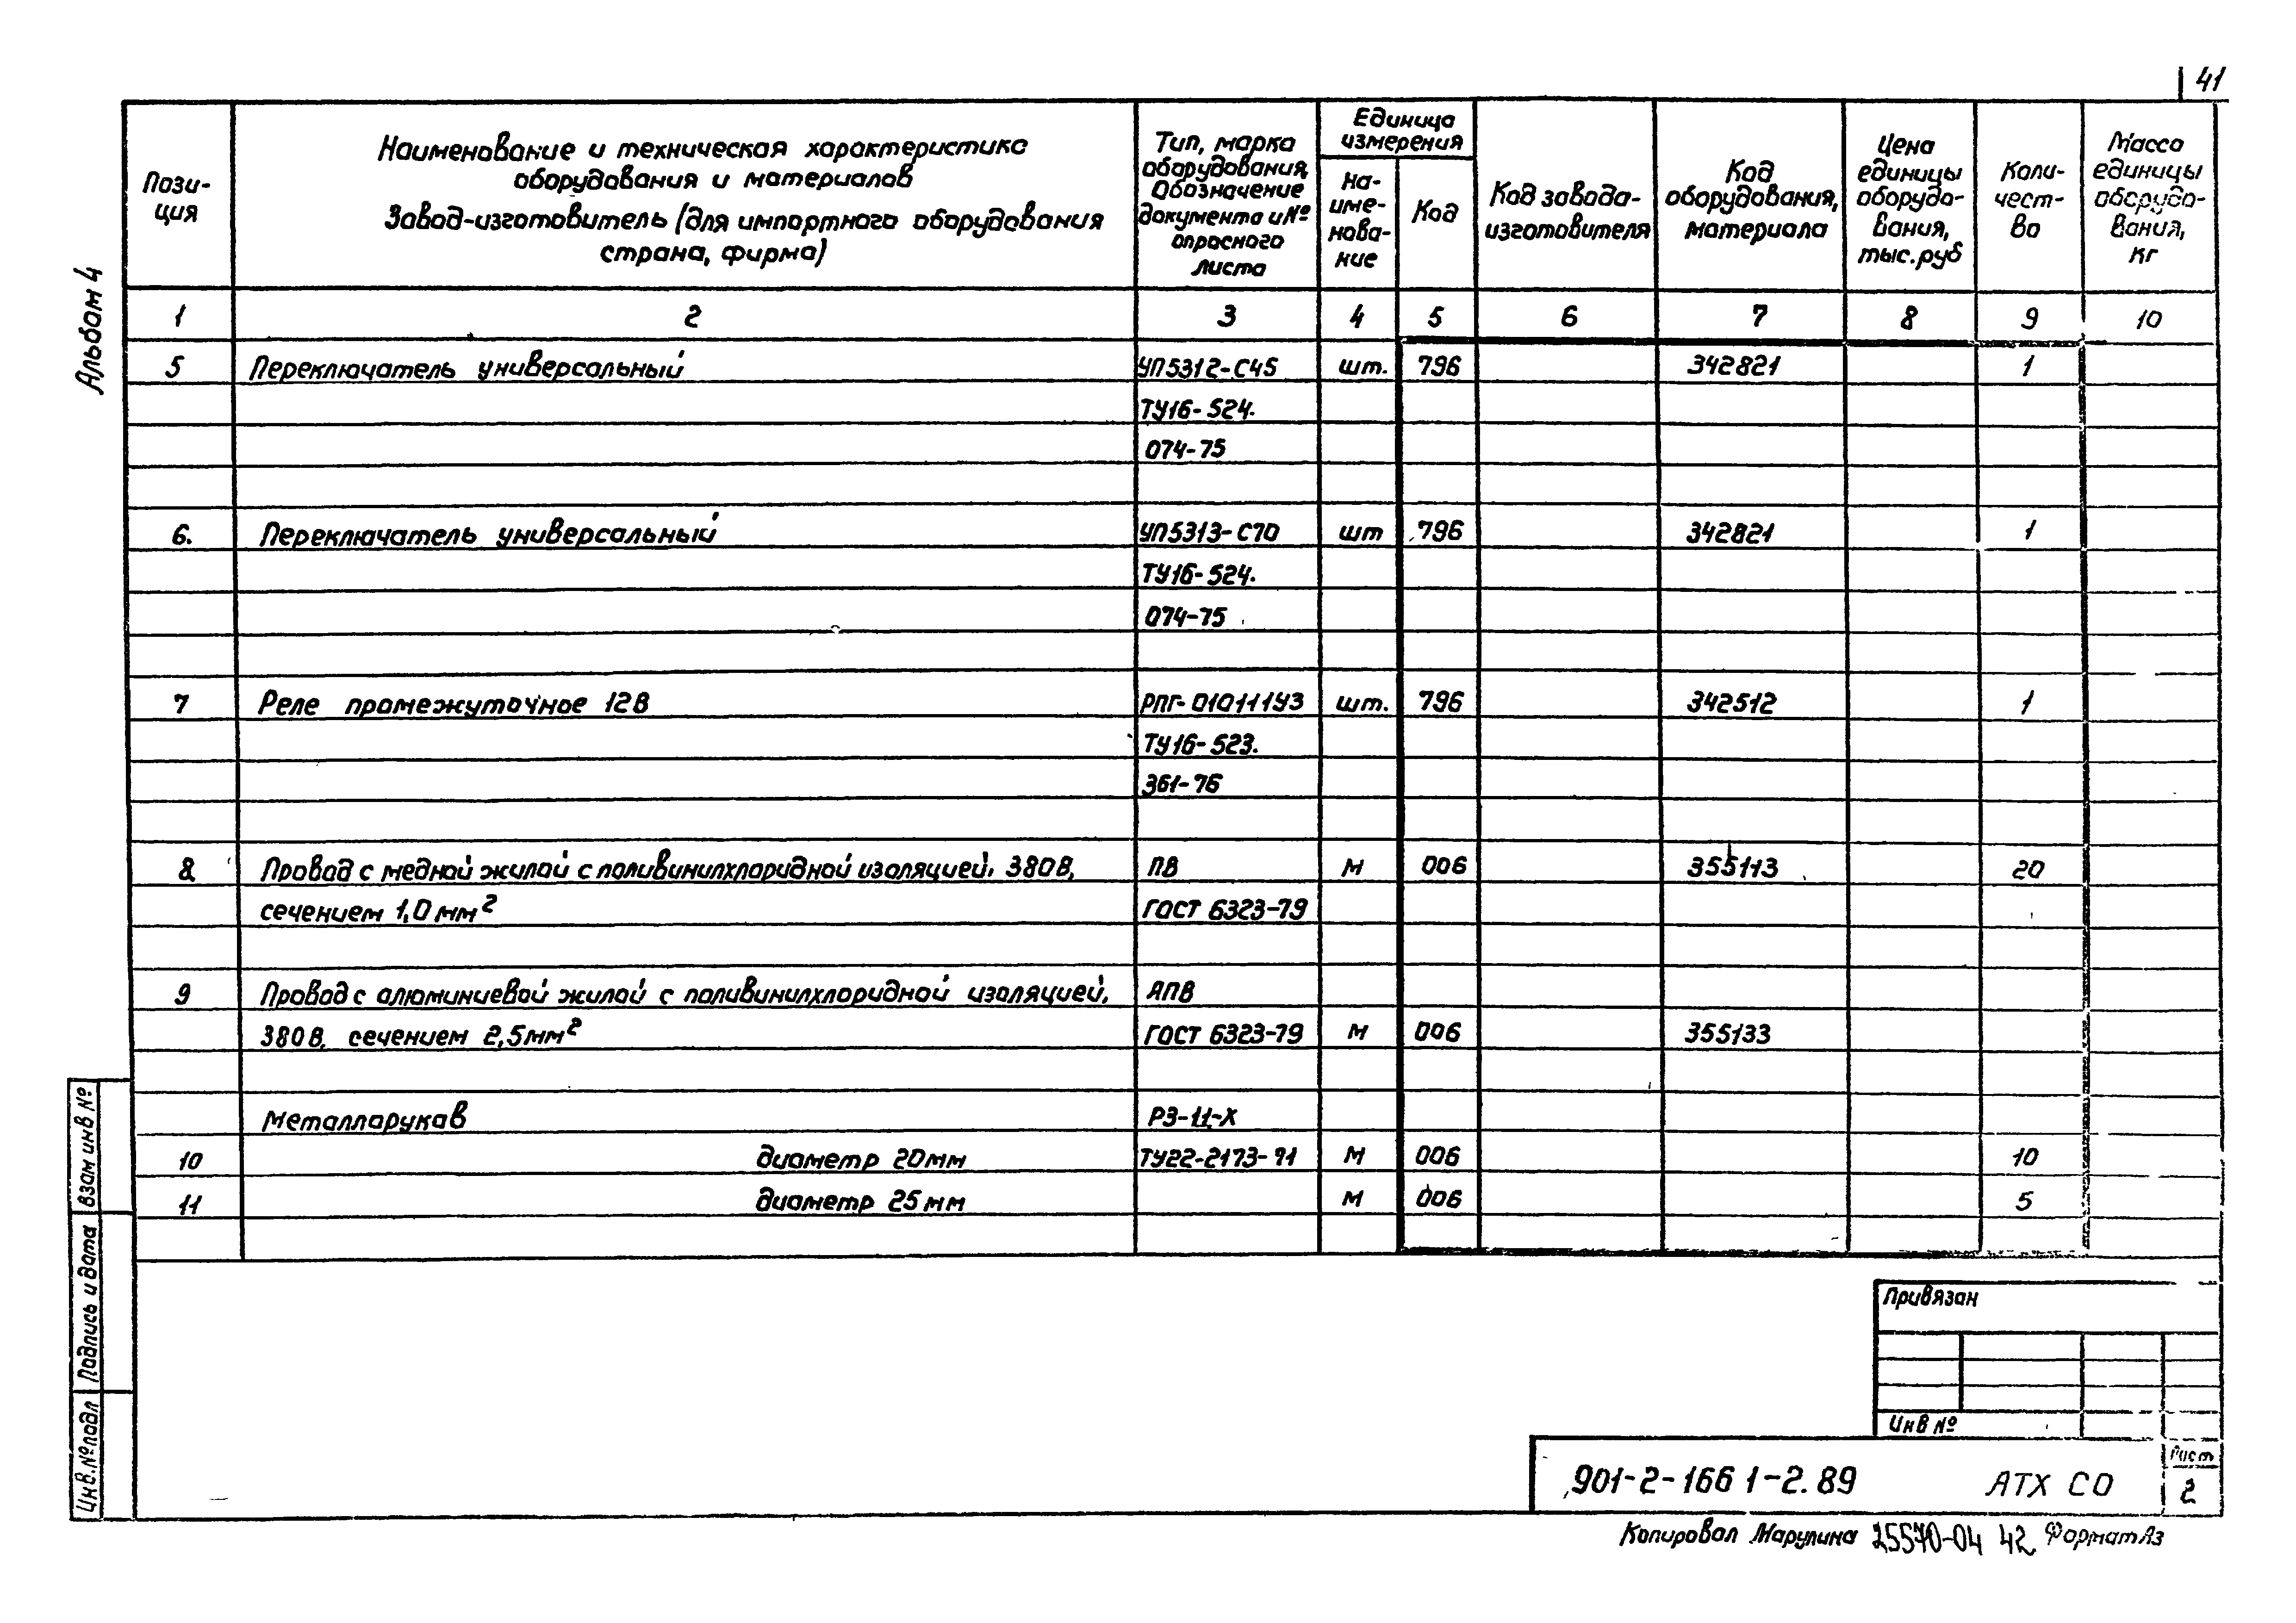 41
Альбом 4
Пози-
ция
Наименование и техническая характеристика
оборудования и материалов
Завод-изготовитель (для импортного оборудования
страна, фирма)
Тип, марка
оборудования,
Обозначение
документа и №
опросного
листа
Единица
измерения
На-
име-
нова-
ние
Код
Код завода-
изготовителя
Код
оборудования,
материала
Цена
единицы
оборудо-
вания,
тыс.руб
Коли-
чест-
во
Масса
единицы
оборудо-
вания,
кг
1 2 3 4 5 6 7 8 9 10
5 Переключатель универсальный УП5312-С45 шт. 796 342821 1
ТУ16-524.
074-75
6. Переключатель универсальный УП5313-С70 шт 796 342821 1
ТУ16-524.
074-75
7 Реле промежуточное 12В РПГ-010111У3 шт. 796 342512 1
ТУ16-523.
361-76
8 Провод с медной жилой с поливинилхлоридной изоляцией, 380В, ПВ м 006 355113 20
сечением 1,0 мм² ГОСТ 6323-79
9 Провод с алюминиевой жилой с поливинилхлоридной изоляцией, АПВ
380В, сечением 2,5мм² ГОСТ 6323-79 м 006 355133
Металлорукав РЗ-Ц-Х
10 диаметр 20мм ТУ22-2173-71 м 006 10
11 диаметр 25мм м 006 5
Взам инв №
Подпись и дата
Инв.№подл
Привязан
Инв №
901-2-166 1-2.89 АТХ СО
Лист
2
Копировал Марулина 25570-04 42 Формат А3